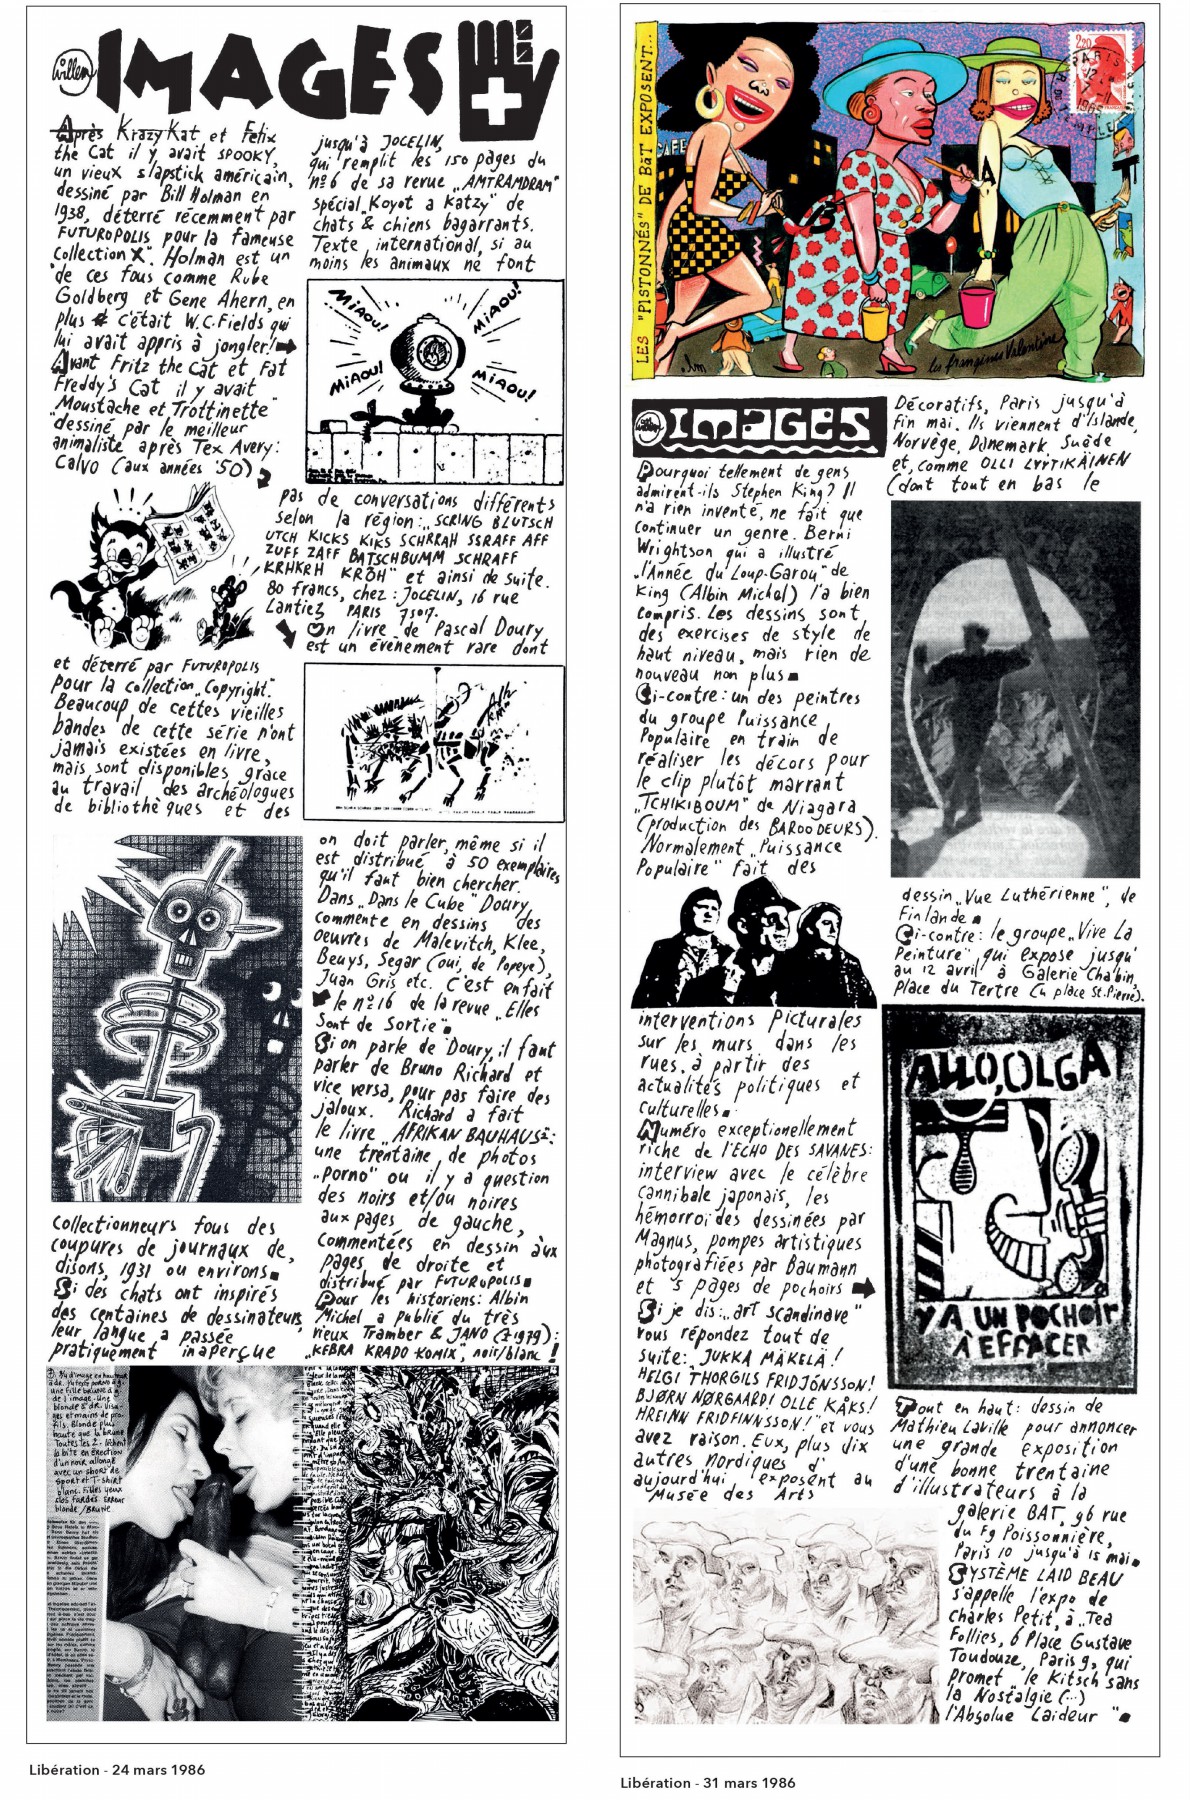 Willem
IMAGES
Après Krazy Kat et Felix
the Cat il y avait SPOOKY,
un vieux slapstick américain,
dessiné par Bill Holman en
1938, déterré récemment par
FUTUROPOLIS pour la fameuse
Collection X. Holman est un
de ces fous comme Rube
Goldberg et Gene Ahern, en
plus c'était W.C. Fields qui
lui avait appris à jongler!
Avant Fritz the Cat et Fat
Freddy's Cat il y avait
"Moustache et Trottinette"
dessiné par le meilleur
animaliste après Tex Avery:
Calvo (aux années '50)
et déterré par FUTUROPOLIS
pour la collection "Copyright".
Beaucoup de cettes vieilles
bandes de cette série n'ont
jamais existées en livre,
mais sont disponibles grace
au travail des archéologues
de bibliothèques et des
Collectionneurs fous des
coupures de journaux de,
disons, 1931 ou environs.
Si des chats ont inspirés
des centaines de dessinateurs,
leur langue a passée
pratiquement inaperçue
jusqu'à JOCELIN,
qui remplit les 150 pages du
nº6 de sa revue "AMTRAMDRAM"
spécial "Koyot a Katzy" de
chats & chiens bagarrants.
Texte international, si au
moins les animaux ne font
MiAOU!
MiAOU!
MiAOU!
MiAOU!
pas de conversations différents
selon la région: "SCRING BLUTSCH
UTCH KICKS KIKS SCHRRAH SSRAFF AFF
ZUFF ZAFF BATSCHBUMM SCHRAFF
KRHKRH KRÖH" et ainsi de suite.
80 francs, chez: JOCELIN, 16 rue
Lantiez PARIS 75017.
Un livre de Pascal Doury
est un événement rare dont
on doit parler, même si il
est distribué à 50 exemplaires
qu'il faut bien chercher.
Dans "Dans le Cube" Doury
commente en dessins des
oeuvres de Malevitch, Klee,
Beuys, Segar (oui, de Popeye),
Juan Gris etc. C'est en fait
le nº16 de la revue "Elles
Sont de Sortie".
Si on parle de Doury, il faut
parler de Bruno Richard et
vice versa, pour pas faire des
jaloux. Richard a fait
le livre "AFRIKAN BAUHAUS":
une trentaine de photos
"porno" ou il y a question
des noirs et/ou noires
aux pages de gauche,
commentées en dessin aux
pages de droite et
distribué par FUTUROPOLIS.
Pour les historiens: Albin
Michel a publié du très
vieux Tramber & JANO (7-1979):
"KEBRA KRADO KOMIX", noir/blanc!
une fille brune à g.
de l'image. Une
blonde à dr. Visa-
ges et mains de pro-
fils. Blonde plus
haute que la brune
Toutes les 2 lèchent
la bite en érection
d'un noir allongé
avec un short de
sport et T-shirt
blanc. Filles yeux
clos fardés. Erreur
blonde/BRUNE
Libération - 24 mars 1986
LES "PISTONNÉS" DE BàT EXPOSENT...
CAFE
2,20
PARIS
1986
B
A
T
les frangines Valentine
IMAGES
Pourquoi tellement de gens
admirent-ils Stephen King? Il
n'a rien inventé, ne fait que
continuer un genre. Berni
Wrightson qui a illustré
"l'Année du Loup-Garou" de
King (Albin Michel) l'a bien
compris. Les dessins sont
des exercises de style de
haut niveau, mais rien de
nouveau non plus.
Ci-contre: un des peintres
du groupe Puissance
Populaire en train de
réaliser les décors pour
le clip plutôt marrant
"TCHIKIBOUM" de Niagara
(production des BARODEURS).
Normalement "Puissance
Populaire" fait des
interventions Picturales
sur les murs dans les
rues, à partir des
actualités politiques et
culturelles.
Numéro exceptionellement
riche de l'ECHO DES SAVANES:
interview avec le célèbre
cannibale japonais, les
hémorroïdes dessinées par
Magnus, pompes artistiques
photografiées par Baumann
et 5 pages de pochoirs
Si je dis: "art scandinave"
vous répondez tout de
suite: "JUKKA MÄKELÄ!
HELGI THORGILS FRIDJÓNSSON!
BJØRN NØRGAARD! OLLE KÅKS!
HREINN FRIDFINNSSON!" et vous
avez raison. Eux, plus dix
autres nordiques d'
aujourd'hui exposent au
Musée des Arts
Décoratifs, Paris jusqu'à
fin mai. Ils viennent d'Islande,
Norvège, Danemark, Suède
et, comme OLLI LYYTIKÄINEN
(dont tout en bas le
dessin "Vue Luthérienne", de
Finlande.
Ci-contre: le groupe "Vive La
Peinture" qui expose jusqu'
au 12 avril à Galerie Chabin,
place du Tertre (4 place St. Pierre).
ALLO, OLGA
Y A UN POCHOIR
À EFFACER
Tout en haut: dessin de
Mathieu Laville pour annoncer
une grande exposition
d'une bonne trentaine
d'illustrateurs à la
galerie BAT, 96 rue
du Fg Poissonnière,
Paris 10 jusqu'à 15 mai.
SYSTÈME LAID BEAU
s'appelle l'expo de
Charles Petit, à "Tea
Follies, 6 Place Gustave
Toudouze, Paris 9, qui
promet "le Kitsch sans
la Nostalgie (...)
l'Absolue Laideur".
Libération - 31 mars 1986